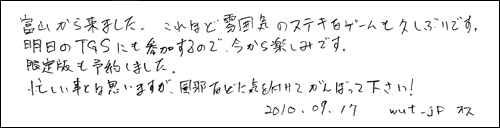 富山から来ました。これほど雰囲気のステキなゲームも久しぶりです。
明日のTGSにも参加するので、今から楽しみです。
限定版も予約しました。
忙しい事とは思いますが、風邪などに気を付けてがんばって下さい!
2010.09.17 wut_jp